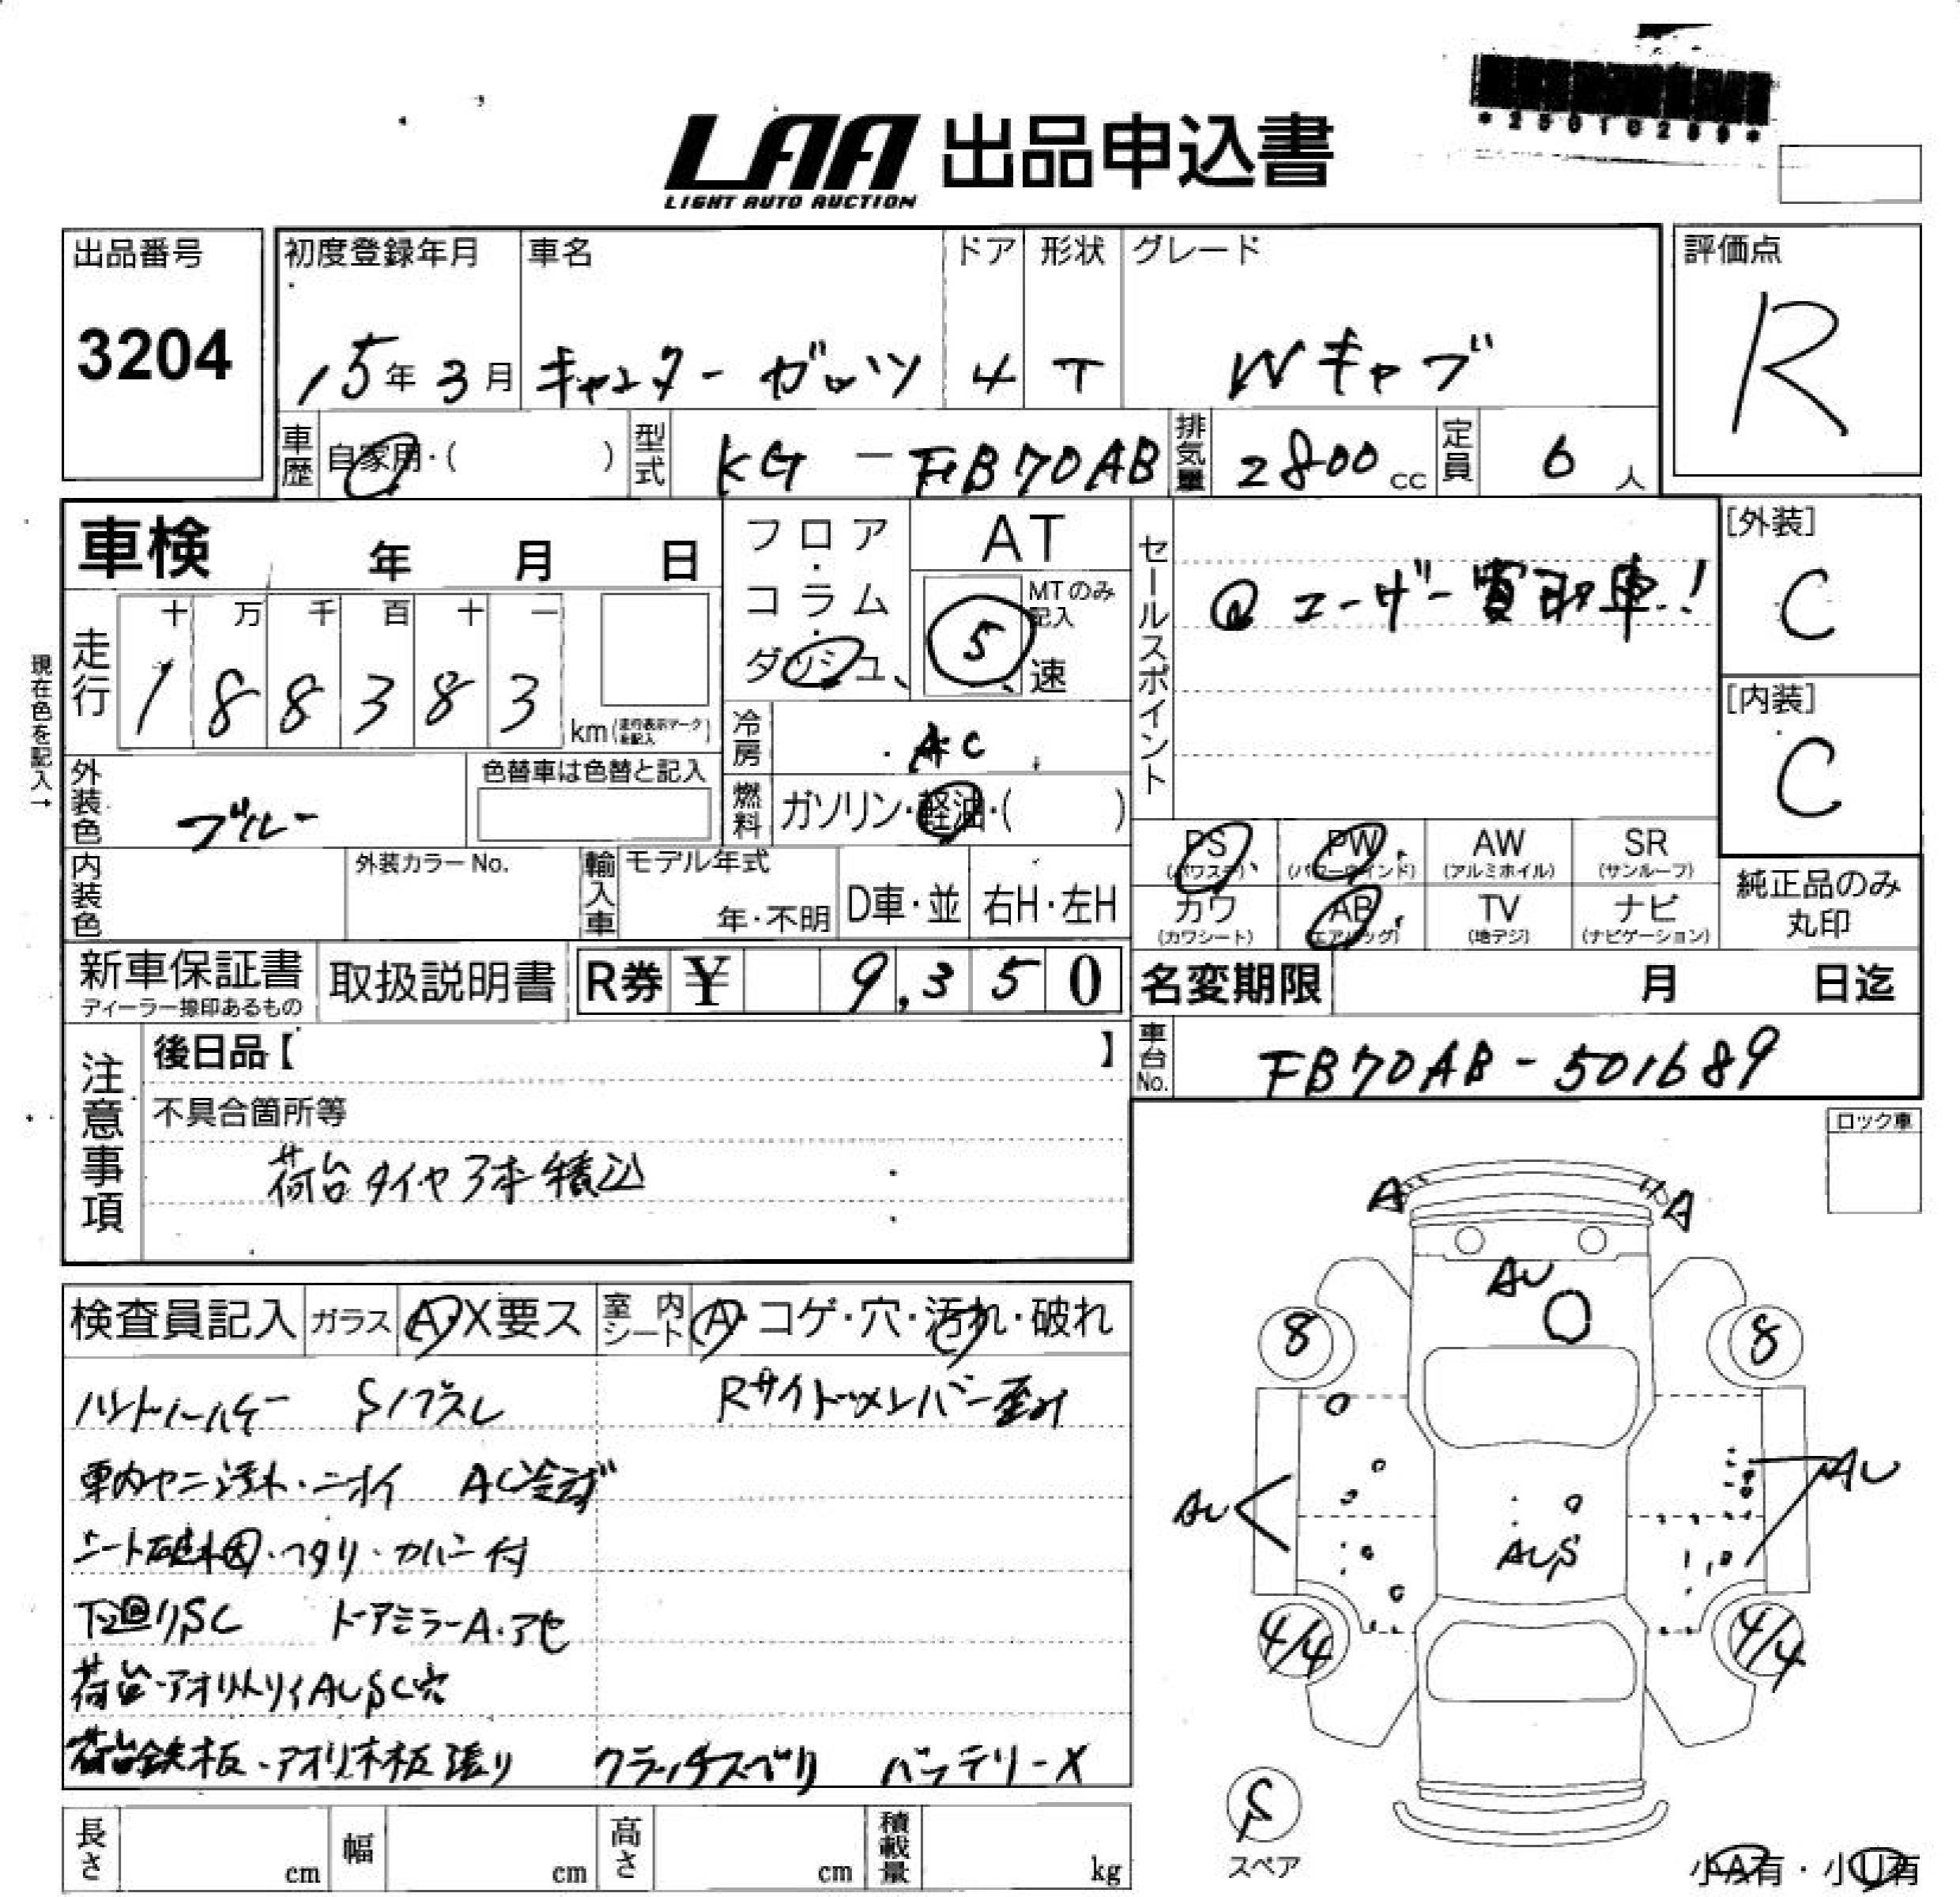 *25010289*
LAA 出品申込書
LIGHT AUTO AUCTION
出品番号 初度登録年月 車名 ドア 形状 グレード 評価点
3204 15年 3月 キャンター ガッツ 4 T Wキャブ R
車歴 自家用・( ) 型式 KG-FB70AB 排気量 2800cc 定員 6人
車検 年 月 日 フロア・コラム・ダッシュ AT MTのみ記入 5 速
セールスポイント @ユーザー買取車!
[外装] C
現在色を記入→
走行 十 万 千 百 十 一
1 8 8 3 8 3 km (走行表示マークを記入)
[内装] C
冷房 AC
外装色 ブルー 色替車は色替と記入 燃料 ガソリン・軽油・( )
PS (パワステ) PW (パワーウインド) AW (アルミホイル) SR (サンルーフ)
内装色 外装カラーNo. 輸入車 モデル年式 年・不明 D車・並 右H・左H
カワ (カワシート) AB (エアバッグ) TV (地デジ) ナビ (ナビゲーション) 純正品のみ丸印
新車保証書 ディーラー捺印あるもの 取扱説明書 R券 ¥ 9,350 名変期限 月 日迄
車台No. FB70AB-501689
注意事項 後日品【 】
不具合箇所等
荷台タイヤ3本積込
ロック車
A A
AU
検査員記入 ガラス A・X要ス 室内シート A・コゲ・穴・汚れ・破れ
8 8
ハンドル Sノブスレ Rサイドメンバー歪み
車内ヤニ汚れ・ニオイ AC冷えず
AU AU
シート破れ ・カバー付
AUS
下回りSC ドアミラーA・アセ
4/4 4/4
荷台・アオリ AUSC穴
荷台鉄板・アオリ木板張り クラッチスベリ バッテリーX
S
スペア
長さ cm 幅 cm 高さ cm 積載量 kg
小A有・小U有